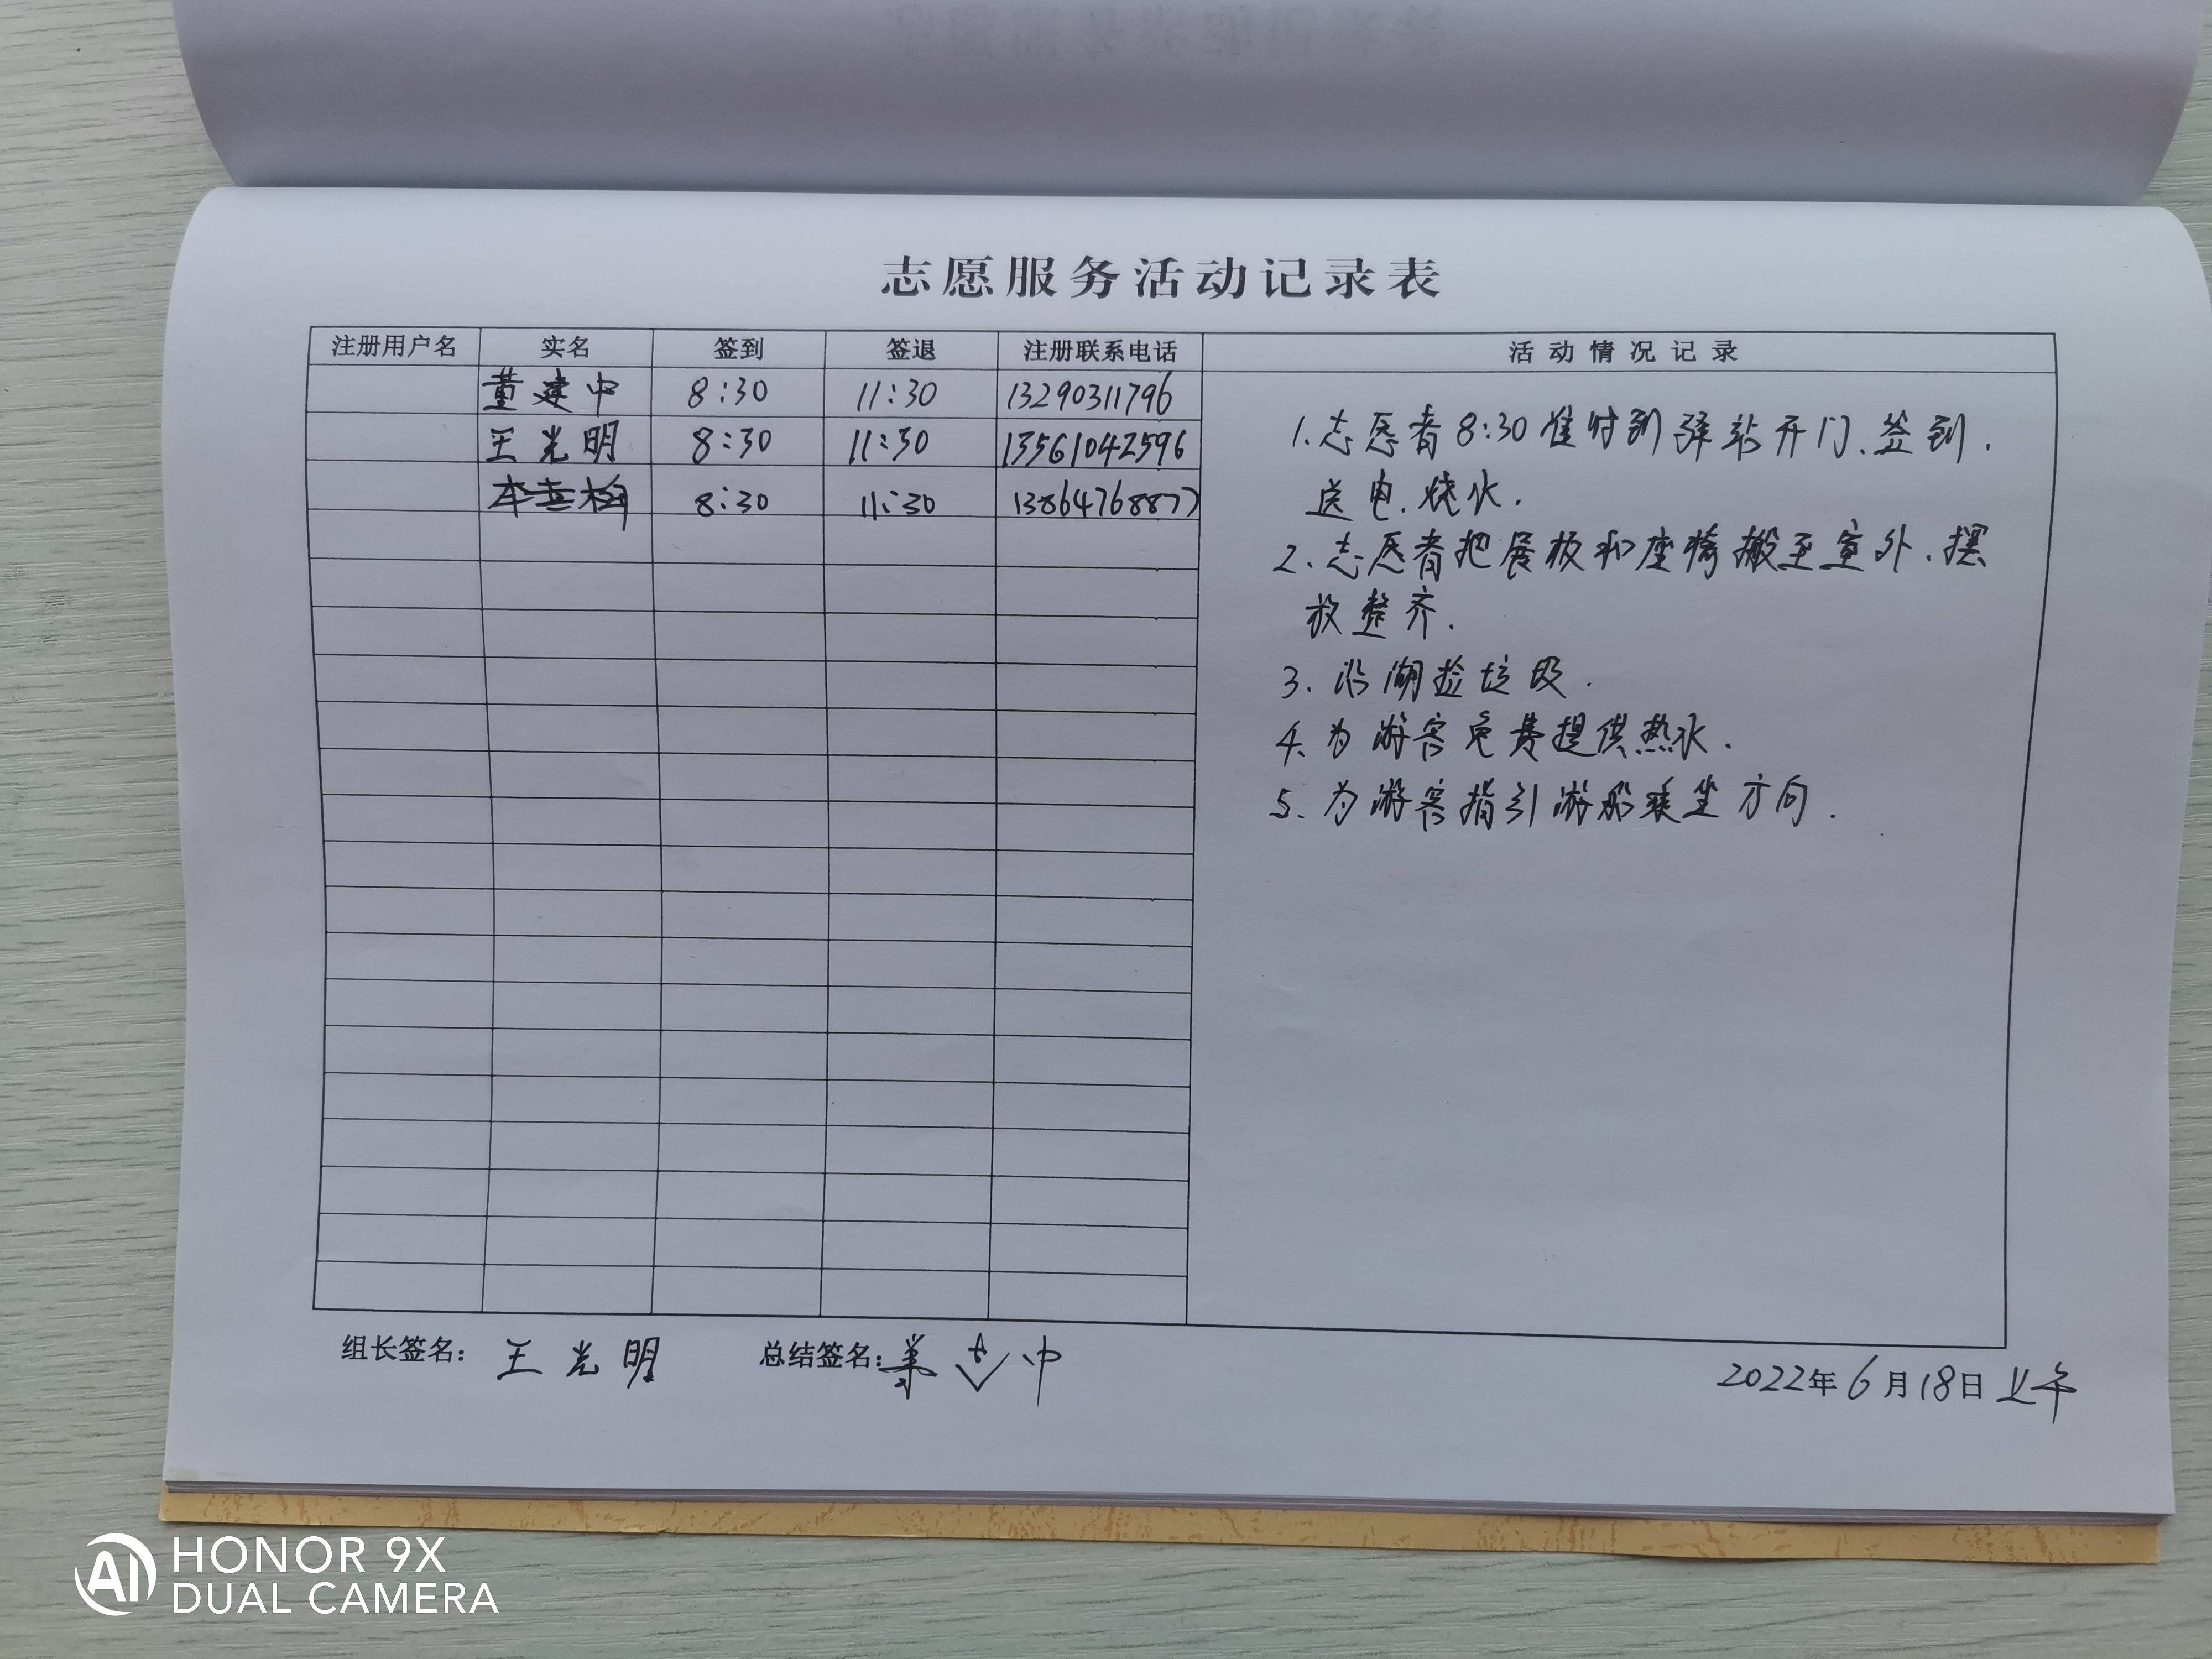 志愿服务活动记录表
注册用户名 实名 签到 签退 注册联系电话 活动情况记录
董建中 8:30 11:30 13290311796
王光明 8:30 11:30 13561042596
8:30 11:30 13864768877
1.志愿者8:30准时到驿站开门、签到.
送电.烧水.
2.志愿者把展板和座椅搬至室外.摆
放整齐.
3.沿湖捡垃圾.
4.为游客免费提供热水.
5.为游客指引游船乘坐方向.
组长签名: 王光明 总结签名:
2022年6月18日上午
HONOR 9X
AI DUAL CAMERA